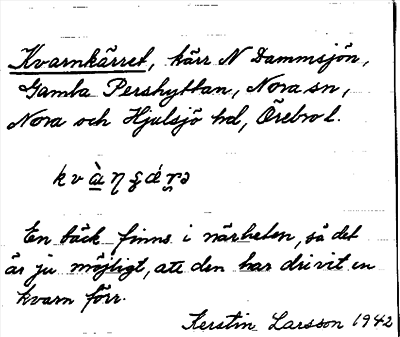 Kvarnkärret, kärr N Dammsjön,
Gamla Pershyttan, Nora sn,
Nora och Hjulsjö hd, Örebro l.
kvàŋɕǽrə
En bäck finns i närheten, så det
är ju möjligt, att den har drivit en
kvarn förr.
Kerstin Larsson 1942